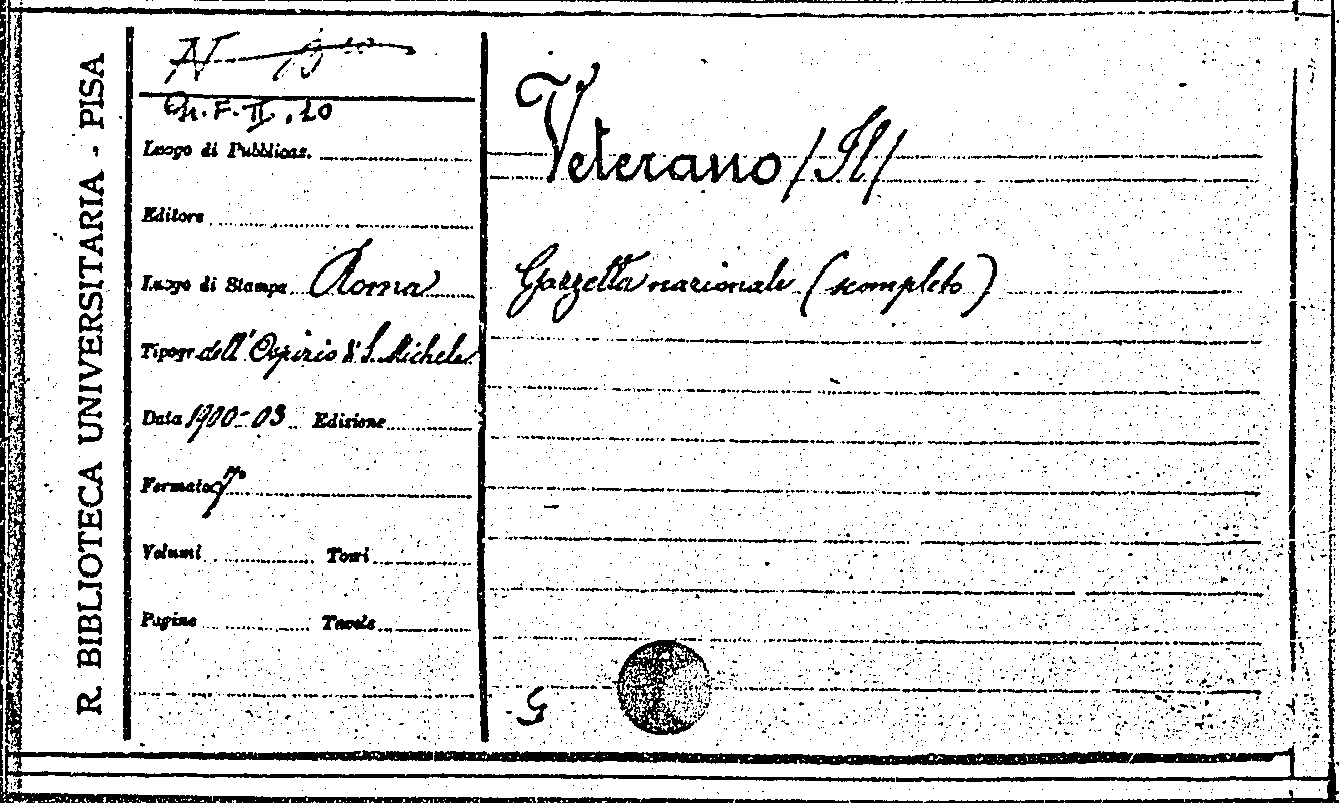 R. BIBLIOTECA UNIVERSITARIA - PISA
II, 10
Luogo di Pubblicaz.
Editore
Luogo di Stampa Roma
Tipogr. dell' Ospizio di S. Michele
Data 1900-03 Edizione
Formato
Volumi Tomi
Pagine Tavole
Veterano /Il/
Gazzetta nazionale (scompleto)
G